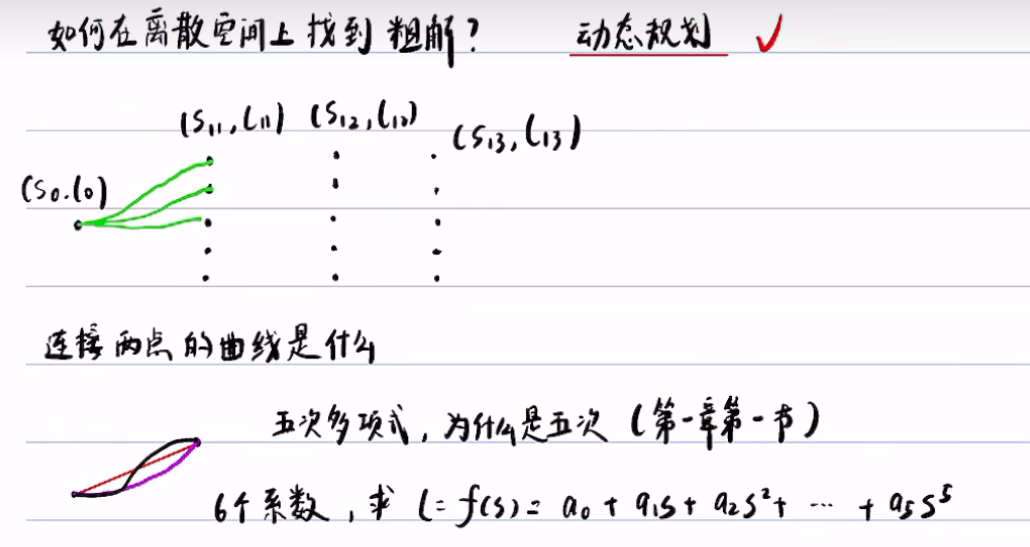 如何在离散空间上找到粗解? 动态规划 ✓
(S₁₁, l₁₁) (S₁₂, l₁₂) (S₁₃, l₁₃)
(S₀.l₀)
连接两点的曲线是什么
五次多项式,为什么是五次(第一章第一节)
6个系数,求 l=f(s)= a₀ + a₁s + a₂s² + … + a₅s⁵